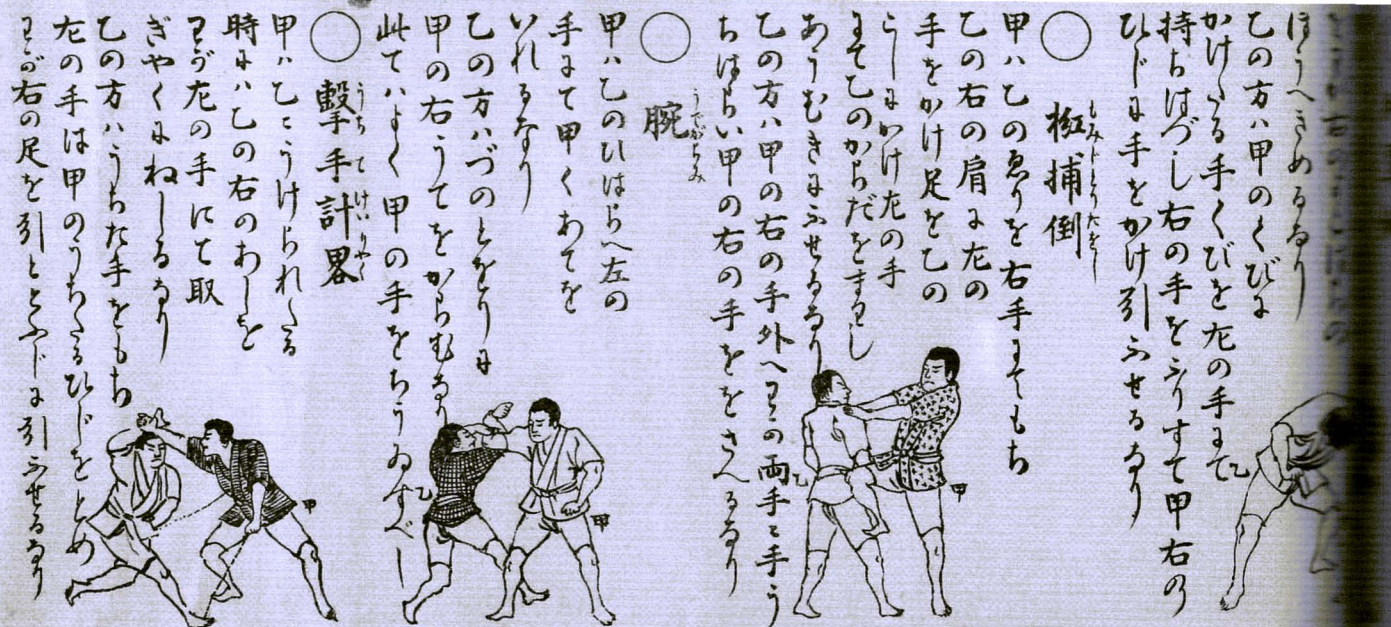 ほうへきめるなり
乙の方ハ甲のくびに
かけたる手くびを左の手にて
持ちはづし右の手をふりすて甲右の
ひじに手をかけ引ふせるなり
○
捕倒
甲ハ乙のゑりを右手にてもち
乙の右の肩に左の
手をかけ足を乙の
こしにかけ左の手
にて乙のからだをまわし
あうむきにふせるなり
乙の方ハ甲の右の手外へ両手ニ手う
ちはらい甲の右の手ををさへるなり
○
腕 うでがらみ
甲ハ乙のひはらへ左の
手にて甲くあてを
いれるなり
乙の方ハづのとをりに
甲の右うてをからむなり
此てハよく甲の手をちうゐすべし
○
撃手計畧 うちてけいりやく
甲ハ乙ニうけられたる
時にハ乙の右のあしを
わが左の手にて取
ぎやくにねしるなり
乙の方ハうちた手をもち
左の手は甲のうちたるひじをとめ
わが右の足を引とどふじに引ふせるなり
甲
乙
甲
乙
甲
乙